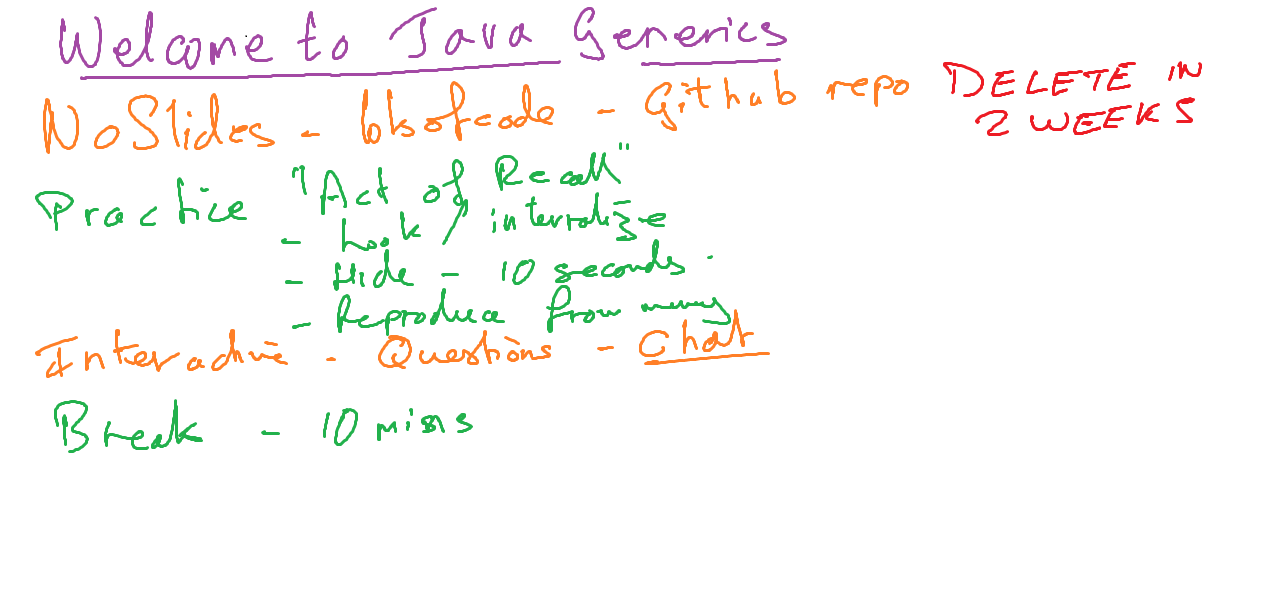 Welcome to Java Generics
No Slides - lots of code - Github repo DELETE IN
2 WEEKS
Practice "Act of Recall"
- Look / internalize
- Hide - 10 seconds.
- Reproduce from memory
Interactive - Questions - Chat
Break - 10 mins